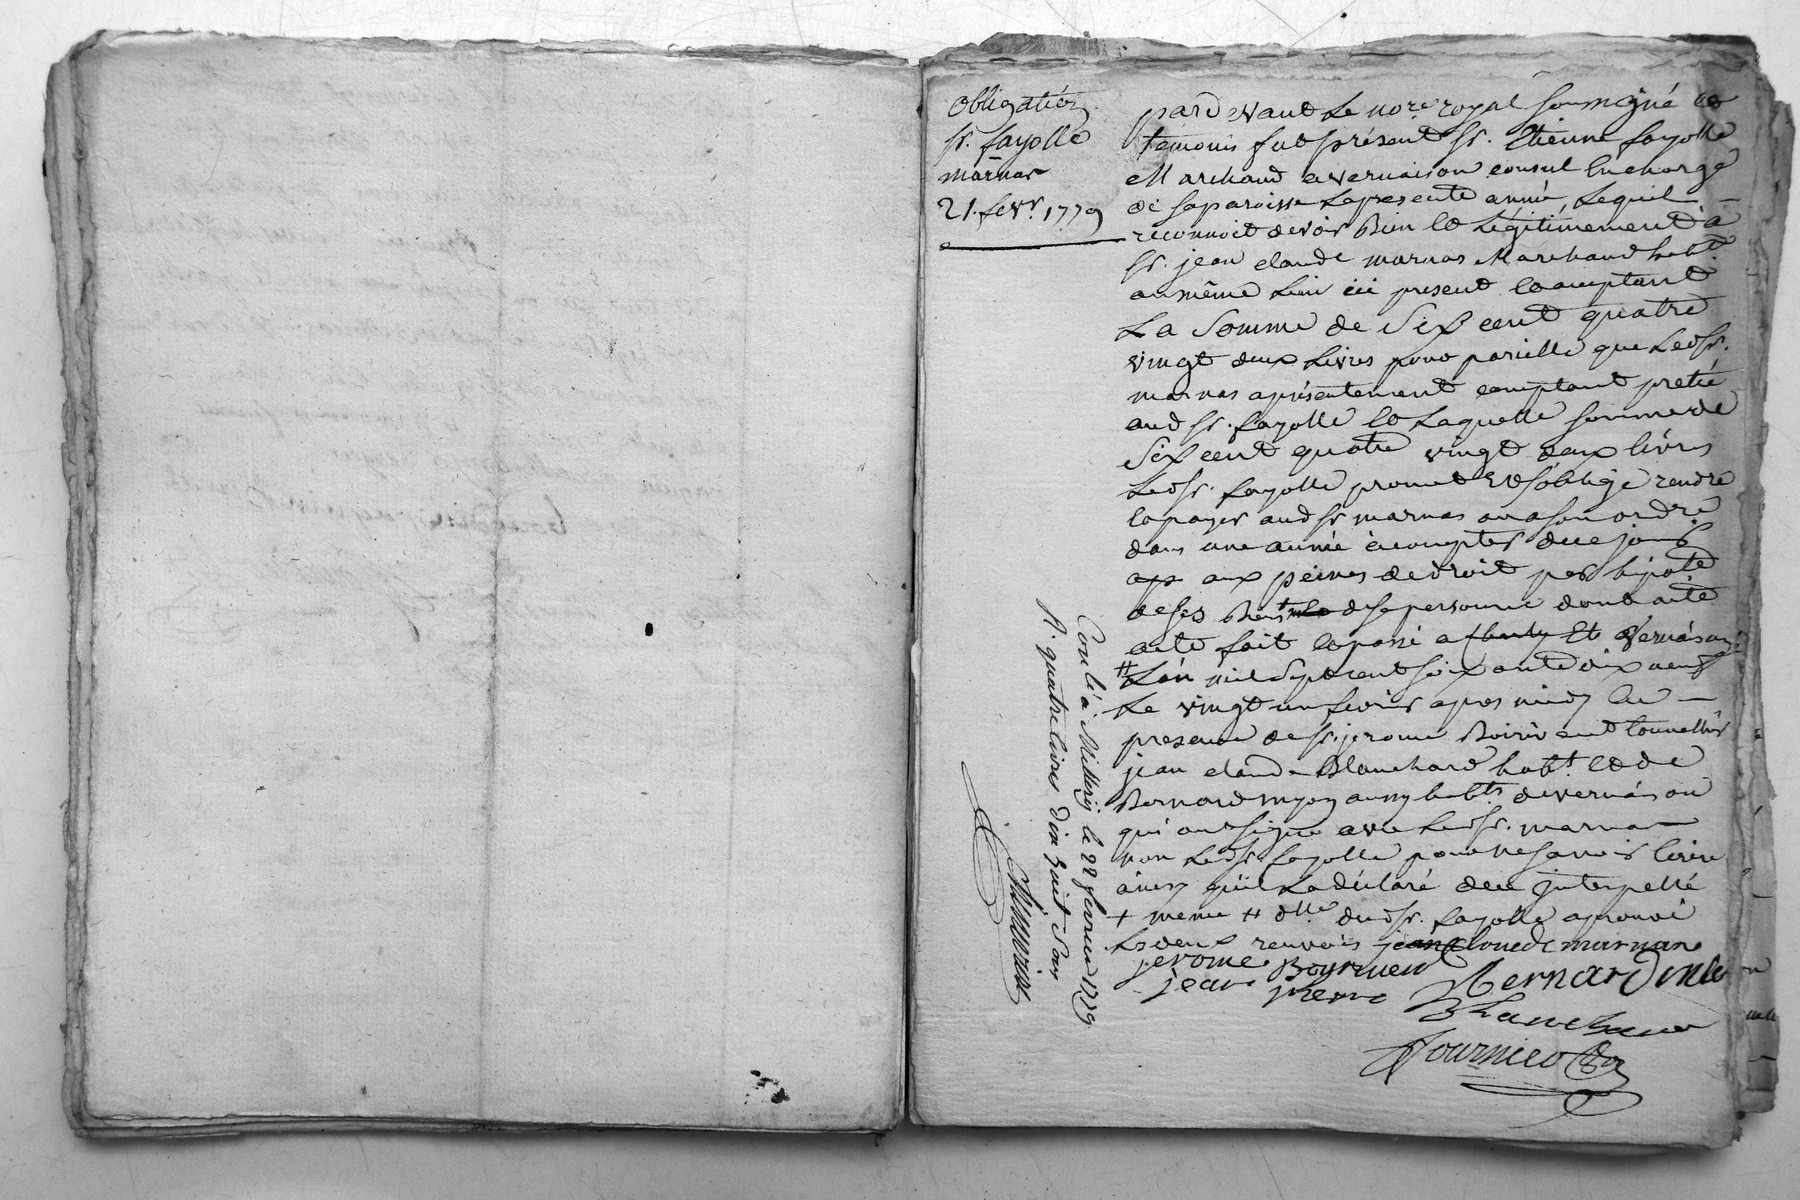 obligation
sr. fayolle
marnas
21. fevr. 1779
pardevant le nore. royal soussigné et
temoins fut présent sr. Etienne fayolle
Marchand a vernaison consul en charge
de sa paroisse la presente année, lequel
reconnoit devoir bien et légitimement à
sr. jean claude marnas Marchand habt.
au même lieu ici present et acceptant
La somme de six cent quatre
vingt deux livres pour parielle que ledsr.
marnas a présentement comptant preté
aud sr. fayolle et laquelle somme de
six cent quatre vingt deux livres
ledsr. fayolle promet et s'oblige rendre
et payer aud sr marnas ou a son ordre
dans une année à compter de ce jour
aux peines de droit par hipote
de ses biens de sa personne dont acte
acte fait et passé a et vernaison
# L'an mil sept cent soixante dix neuf
le vingt un fevrier apres midy en
presence de sr. jerome Boirivent
jean claude Blanchard habt. et de
Bernard aussy habts. de vernaison
qui ont signé avec ledsr. marnas
non ledsr fayolle pour ne savoir ecrire
ainsy qu'il l'a déclaré de ce interpellé
+ meme # dlle. dudsr. fayolle aprouvé
les deux renvois jean claude marnas
jerome Boyriven Bernard
jean pierre Blanchard
fournier
Conlé à Millery le 22 fevrier 1779
R. quatre livres dix huit sous